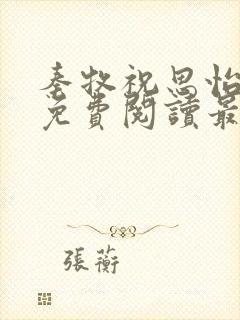 秦牧祝思怡
免費閱讀最
張蘅